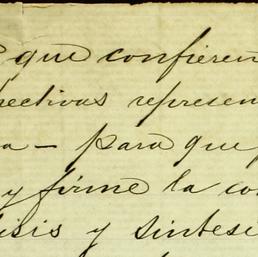 que confieren
rectivas represen
a — para que
y firme la co
isis y sintesi